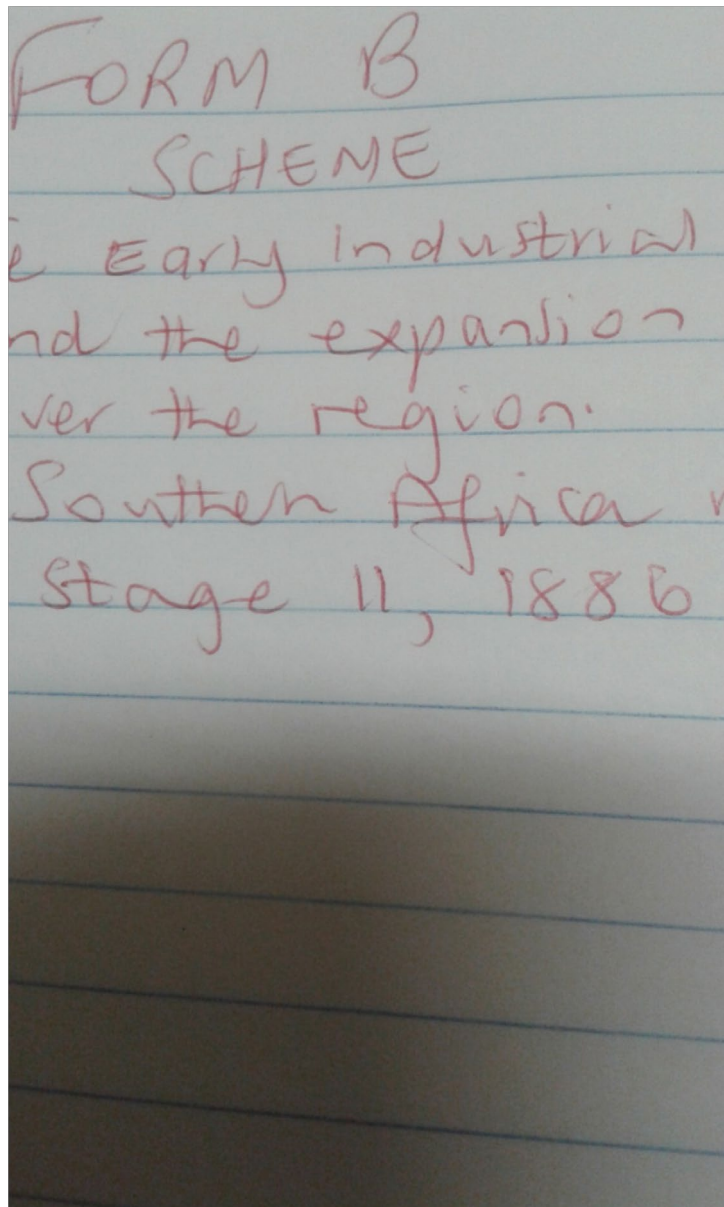 FORM B
SCHEME
e Early Industrial
nd the expansion
ver the region.
Southen Africa
Stage 11, 1886